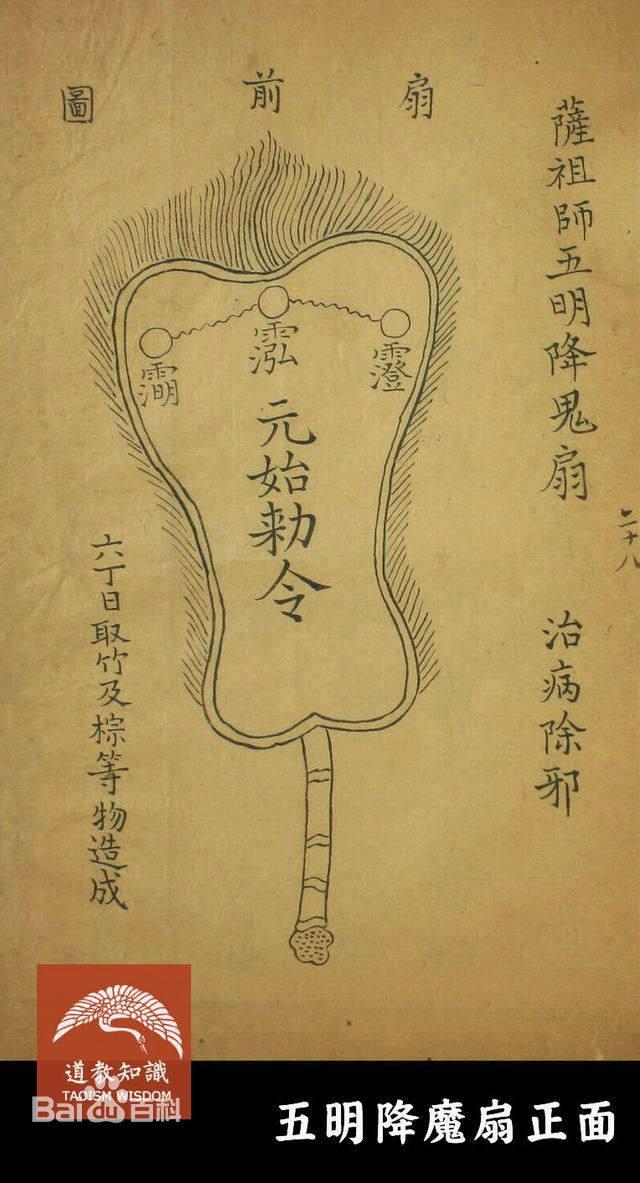 二十八
薩祖師五明降鬼扇
治病除邪
扇前圖
元始勅令
六丁日取竹及棕等物造成
道教知識
TAOISM WISDOM
Bai百科
五明降魔扇正面